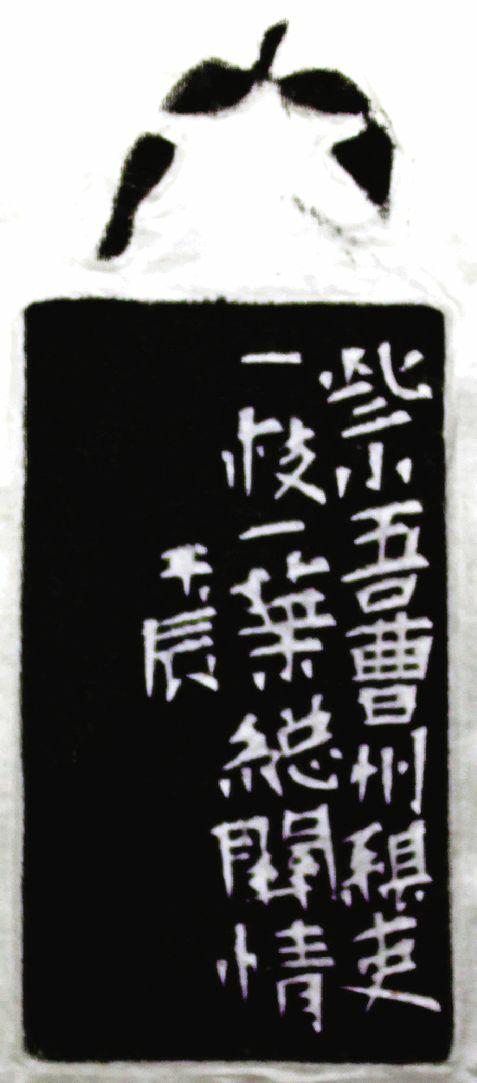 些小吾曹州縣吏
一枝一葉總關情
辰